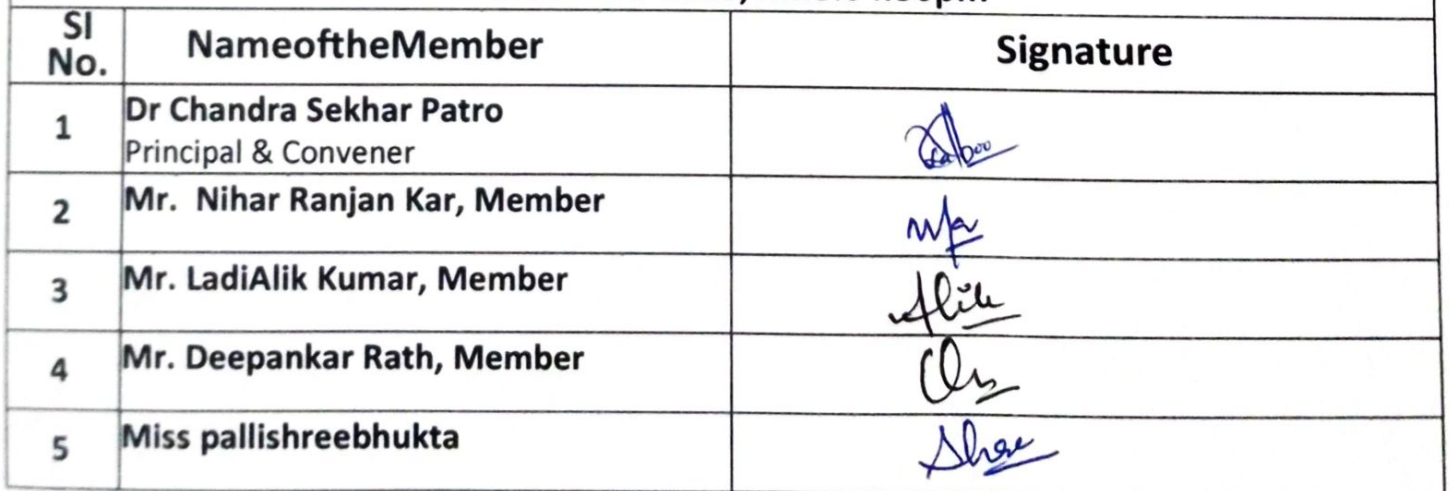 Sl No. NameoftheMember Signature
1 Dr Chandra Sekhar Patro
Principal & Convener
2 Mr. Nihar Ranjan Kar, Member
3 Mr. LadiAlik Kumar, Member Alik
4 Mr. Deepankar Rath, Member
5 Miss pallishreebhukta